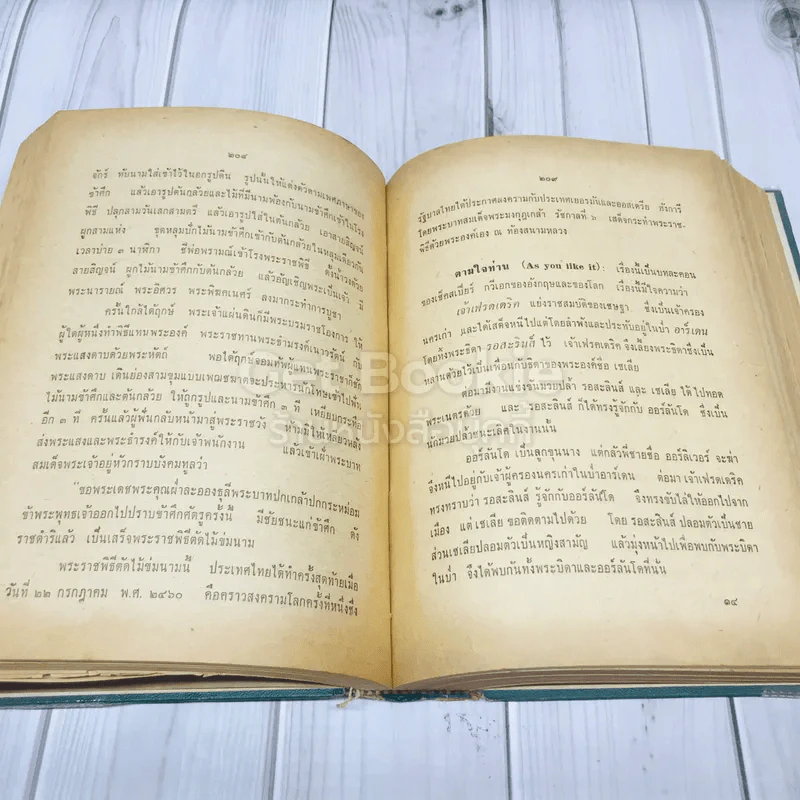 ๒๐๘
จักร์ ทับนามใส่เข้าไว้ในอกรูปดิน รูปนั้นให้แต่งตัวตามเพศภาษาของ
ข้าศึก แล้วเอารูปต้นกล้วยและไม้ที่มีนามพ้องกับนามข้าศึกเข้าในโรง
พิธี ปลุกสามวันเสกสามตรี แล้วเอารูปใส่ในต้นกล้วย เอาสายสิญจน์
ผูกสามแห่ง ขุดหลุมปักไม้นามข้าศึกเข้ากับต้นกล้วยในหลุมเดียวกัน
เวลาบ่าย ๓ นาฬิกา ชีพ่อพราหมณ์เข้าโรงพระราชพิธี ตั้งน้ำวงด้วย
สายสิญจน์ ผูกไม้นามข้าศึกกับต้นกล้วย แล้วอัญเชิญพระเป็นเจ้า มี
พระนารายณ์ พระอิศวร พระพิฆคเนศร์ ลงมากระทำการบูชา
ครั้นใกล้ได้ฤกษ์ พระเจ้าแผ่นดินก็มีพระบรมราชโองการ ให้
ผู้ใดผู้หนึ่งทำพิธีแทนพระองค์ พระราชทานพระธำมรงค์เนาวรัตน์ กับ
พระแสงดาบด้วยพระหัตถ์ พอได้ฤกษ์จอมทัพผู้แทนพระราชาก็ชัก
พระแสงดาบ เดินย่องสามขุมแบบเพณฆาต
ไม้นามข้าศึกและต้นกล้วย ให้ถูกรูปและนามข้าศึก ๓ ที เหยียบกระทืบ
อีก ๓ ที ครั้นแล้วผู้ฟันกลับหน้ามาสู่พระราชวัง ห้ามมิให้เหลียวหลัง
ส่งพระแสงและพระธำรงค์ให้กับเจ้าพนักงาน แล้วเข้าเฝ้าพระบาท
สมเด็จพระเจ้าอยู่หัวกราบบังคมทูลว่า
“ขอพระเดชพระคุณฝ่าละอองธุลีพระบาทปกเกล้าปกกระหม่อม
ข้าพระพุทธเจ้าออกไปปราบข้าศึกศัตรูครั้งนี้ มีชัยชนะแก่ข้าศึก ดัง
ราชดำริแล้ว เป็นเสร็จพระราชพิธีตัดไม้ข่มนาม
พระราชพิธีตัดไม้ข่มนามนี้ ประเทศไทยได้ทำครั้งสุดท้ายเมื่อ
วันที่ ๒๒ กรกฎาคม พ.ศ. ๒๔๖๐ คือคราวสงครามโลกครั้งที่หนึ่งซึ่ง
๒๐๙
รัฐบาลไทยได้ประกาศสงครามกับประเทศเยอรมันและออสเตรีย ทั้งการี
โดยพระบาทสมเด็จพระมงกุฎเกล้า รัชกาลที่ ๖ เสด็จกระทำพระราช-
พิธีด้วยพระองค์เอง ณ ท้องสนามหลวง
ตามใจท่าน (As you like it): เรื่องนี้เป็นบทละคอน
ของเช็คสเปียร์ กวีเอกของอังกฤษและของโลก เรื่องนี้มีใจความว่า
เจ้าเฟรดเตริค แย่งราชสมบัติของเชษฐา ซึ่งเป็นเจ้าครอง
นครเก่า และได้เสด็จหนีไปแต่โดยลำพังและประทับอยู่ในป่า อาร์เดน
โดยทิ้งพระธิดา รอสะลินส์ ไว้ เจ้าเฟรดเตริค จึงเลี้ยงพระธิดาซึ่งเป็น
หลานด้วยไว้เป็นเพื่อนกับธิดาของพระองค์ชื่อ เซเลีย
ต่อมามีงานแข่งขันมวยปล้ำ รอสะลินส์ และ เซเลีย ได้ไปทอด
พระเนตรด้วย และ รอสะลินส์ ก็ได้ทรงรู้จักกับ ออร์ลันโด ซึ่งเป็น
นักมวยปล้ำชนะเลิศในงานนั้น
ออร์ลันโด เป็นลูกขุนนาง แต่กลัวพี่ชายชื่อ ออร์ลิเวอร์ จะฆ่า
จึงหนีไปอยู่กับเจ้าผู้ครองนครเก่าในป่าอาร์เดน ต่อมา เจ้าเฟรดเตริค
ทรงทราบว่า รอสะลินส์ รู้จักกับออร์ลันโด จึงทรงขับไล่ให้ออกไปจาก
เมือง แต่ เซเลีย ขอติดตามไปด้วย โดย รอสะลินส์ ปลอมตัวเป็นชาย
ส่วนเซเลียปลอมตัวเป็นหญิงสามัญ แล้วมุ่งหน้าไปเพื่อพบกับพระบิดา
ในป่า จึงได้พบกันทั้งพระบิดาและออร์ลันโดที่นั้น
๑๔